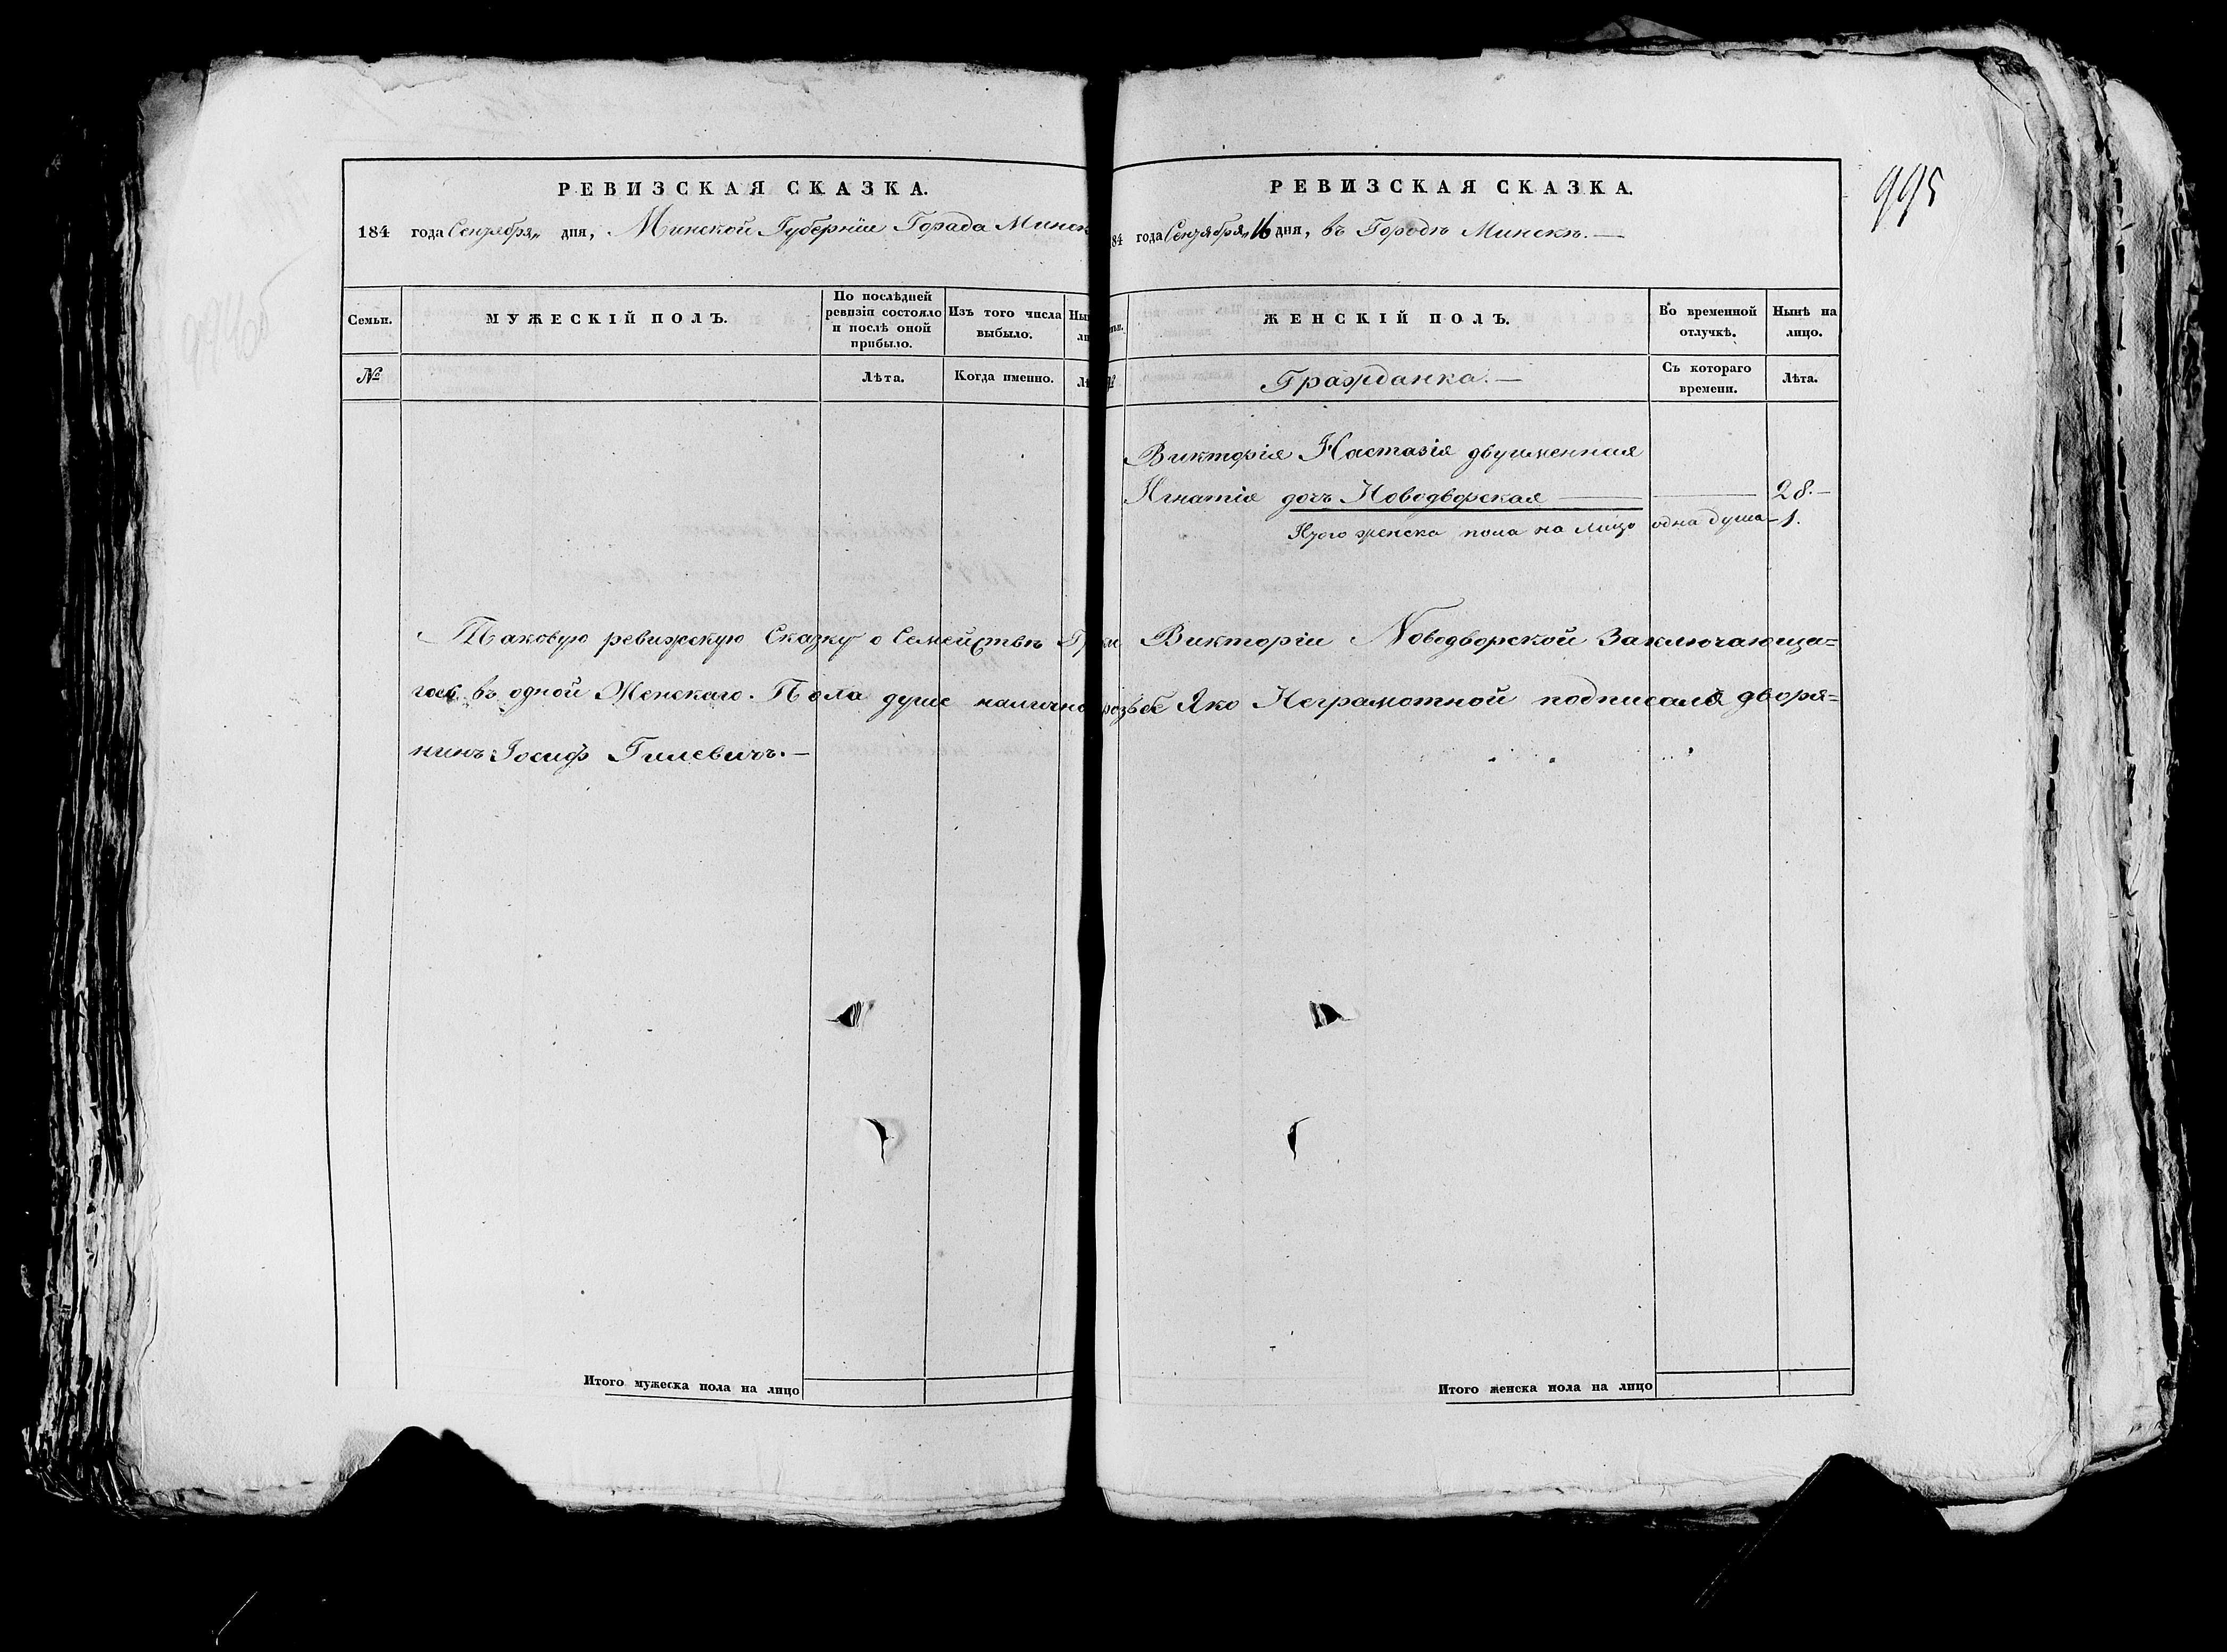 РЕВИЗСКАЯ СКАЗКА.
184 года Сентября „ дня, Минской Губерніи Города Минск
Семьи.
МУЖЕСКІЙ ПОЛЪ.
По послѣдней ревизіи состояло и послѣ оной прибыло.
Изъ того числа выбыло.
№
Лѣта.
Когда именно.
Таковую ревижскую Сказку о Семействѣ
въ одной Женскаго Пола душе налично
нинъ Іосиф Гилевичъ. —
Итого мужеска пола на лицо
995
РЕВИЗСКАЯ СКАЗКА.
84 года Сентября „16 дня, въ Городѣ Минскѣ. —
ЖЕНСКІЙ ПОЛЪ.
Во временной отлучкѣ.
Нынѣ на лицо.
Гражданка. —
Съ котораго времени.
Лѣта.
Викторія Настазія двуименная
Игнатія дочь Новодворская — — 28. —
Итого женска пола на лицо одна душа — 1.
Викторіи Новодворской Заключающа=
розьбе Яко Неграмотной подписалъ дворя=
Итого женска пола на лицо